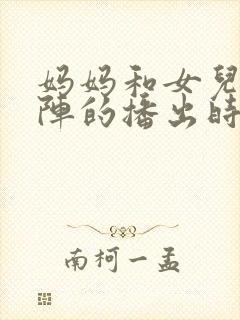 妈妈和女兒
陣的播出時
南柯一孟